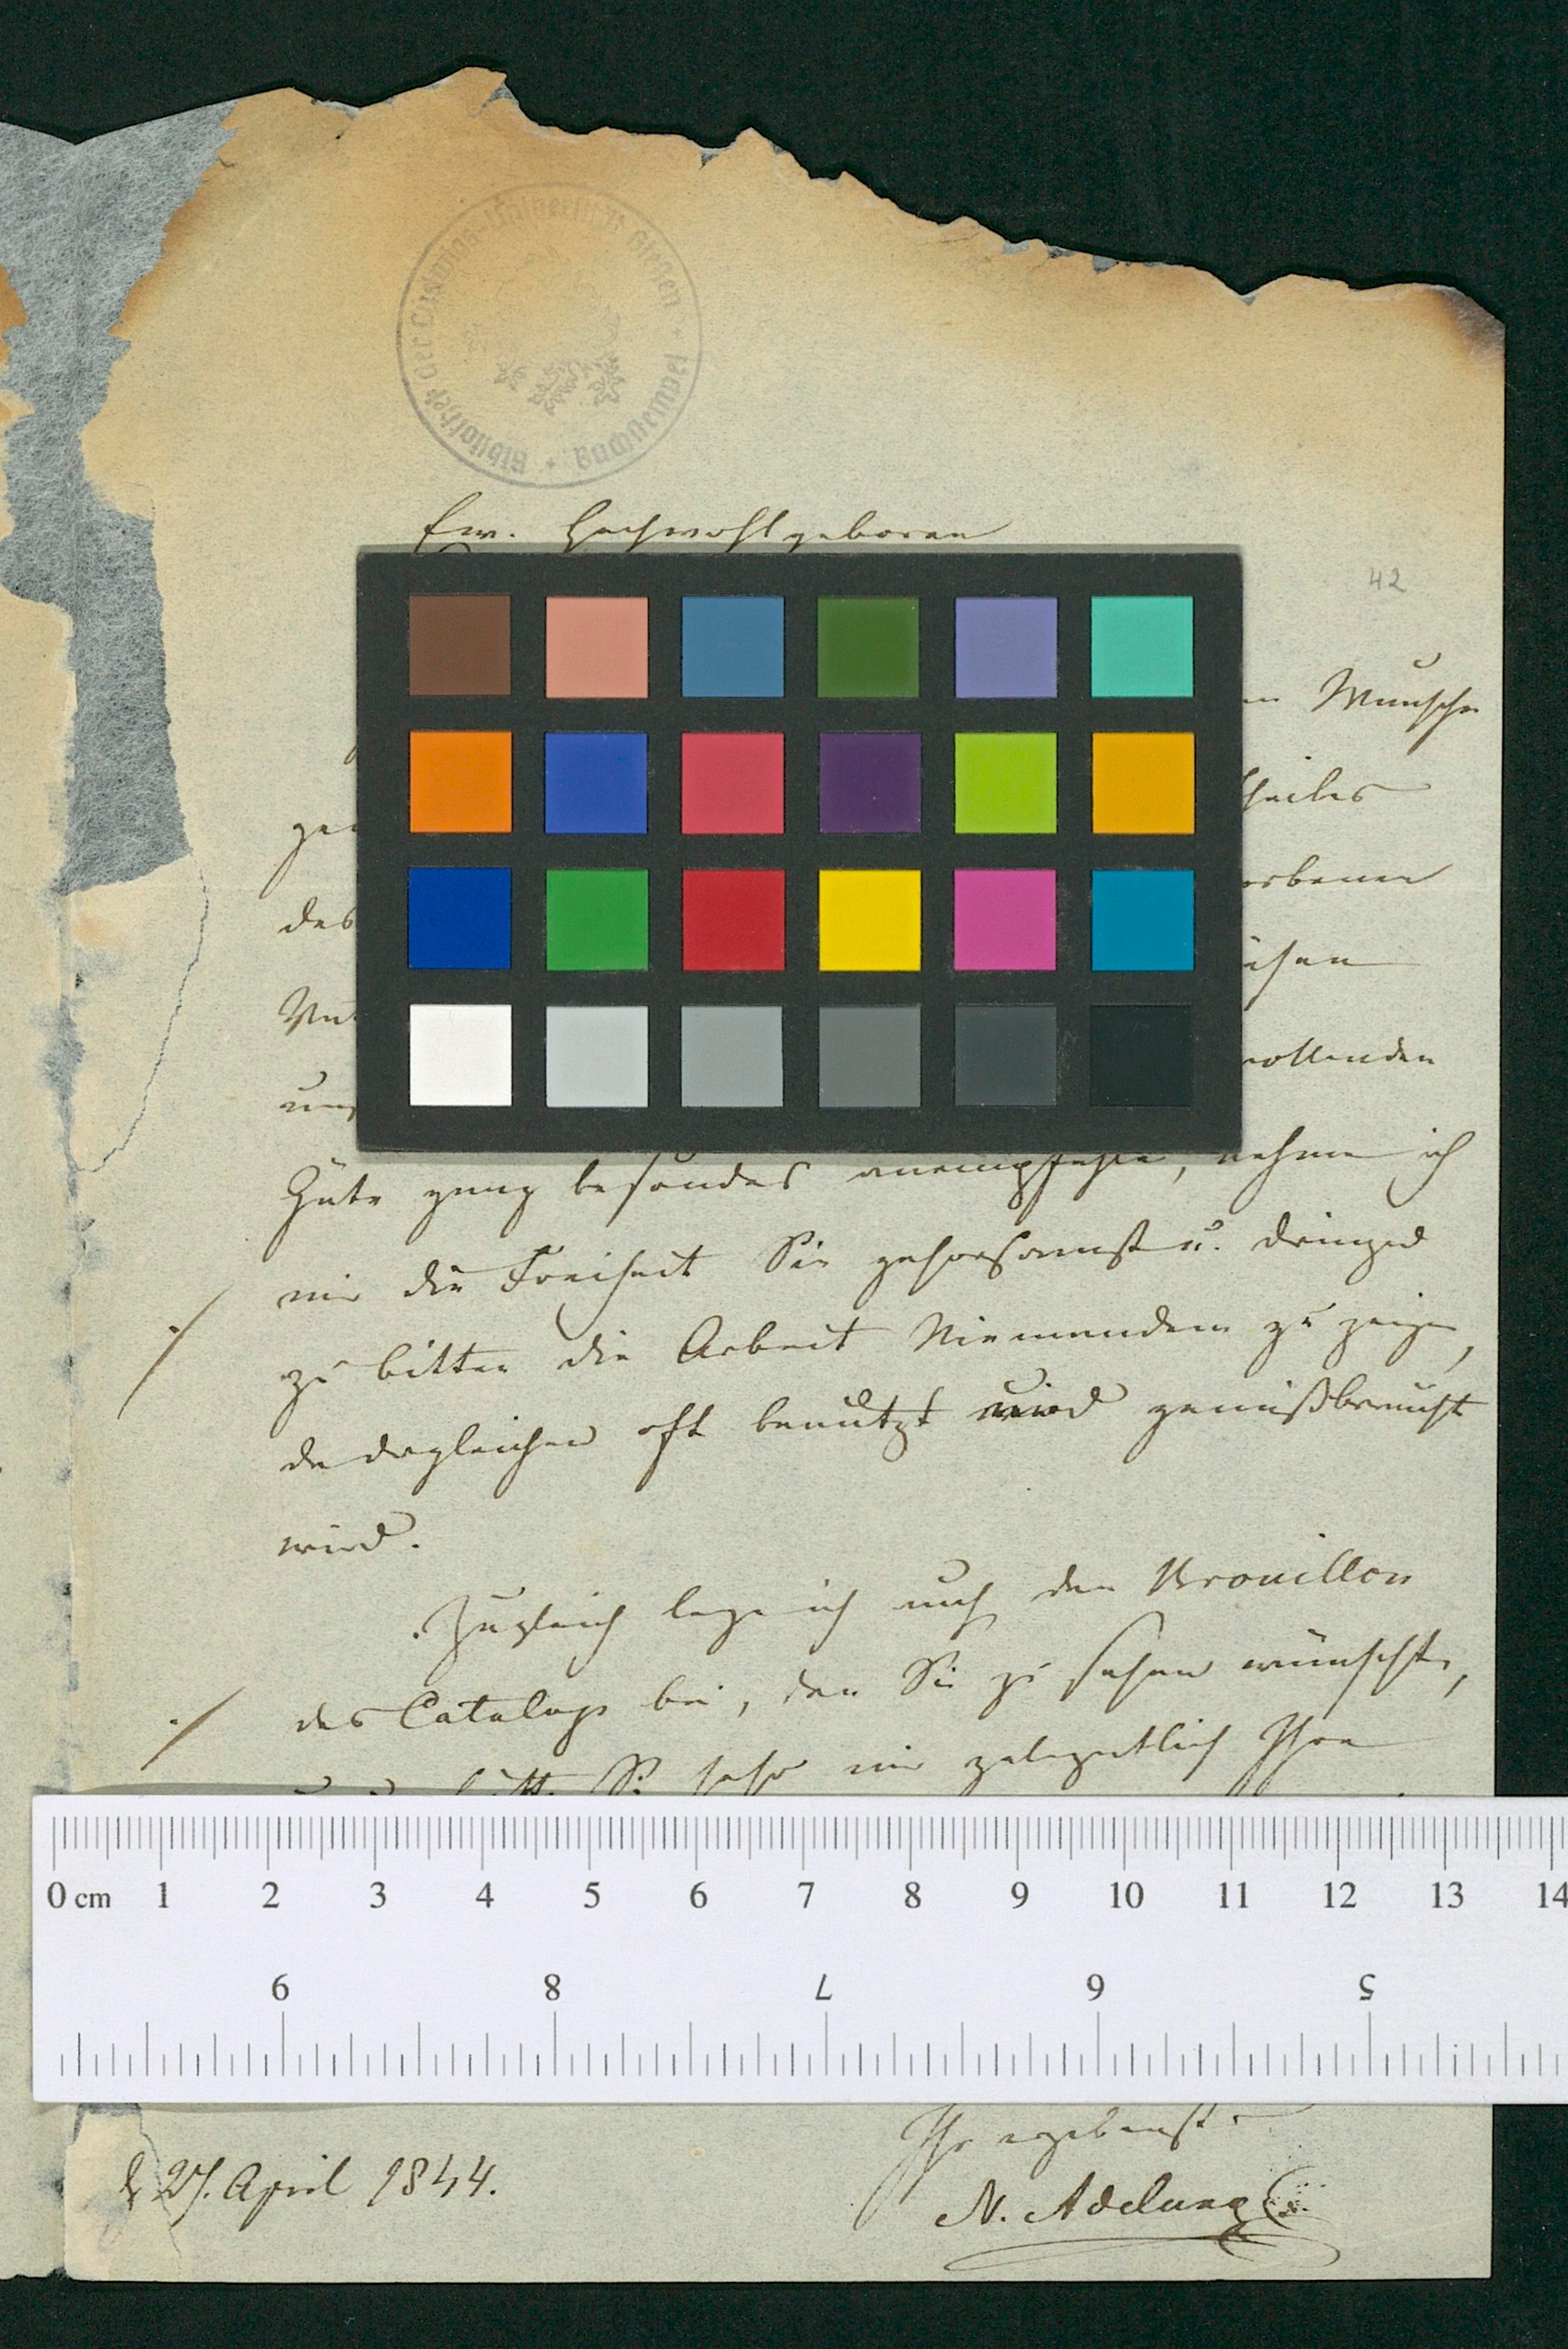 Bibliothek der Ludwigs-Universität Gießen * Buchstempel *
Ew. Hochwohlgeboren
42
Wunsche
theiles
des
orbenen
wollenden
Güte ganz besonders anempfehle, nehme ich
mir die Freiheit Sie gehorsamst u. dringend
zu bitten die Arbeit Niemandem zu zeigen,
da dergleichen oft benutzt und gemißbraucht
wird.
Zugleich lege ich auch den Brouillon
des Catalogs bei, den Sie zu sehen wünschten,
bitte Sie sehr mir gelegentlich Ihre
0 cm 1 2 3 4 5 6 7 8 9 10 11 12 13 14
9 8 7 6 5
Ihr ergebenster
d 27. April 1844.
N. Adelung